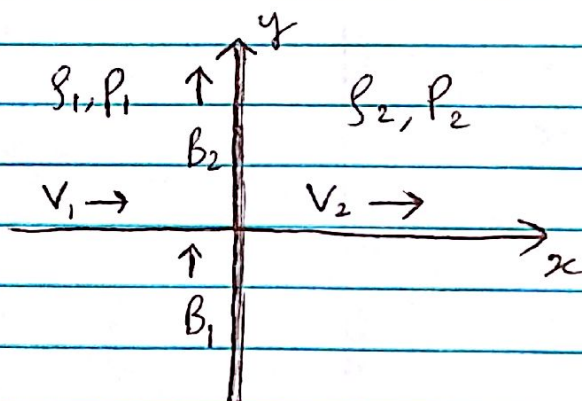 y
ρ₁, P₁ ↑ ρ₂, P₂
B₂
V₁ → V₂ →
x
↑
B₁